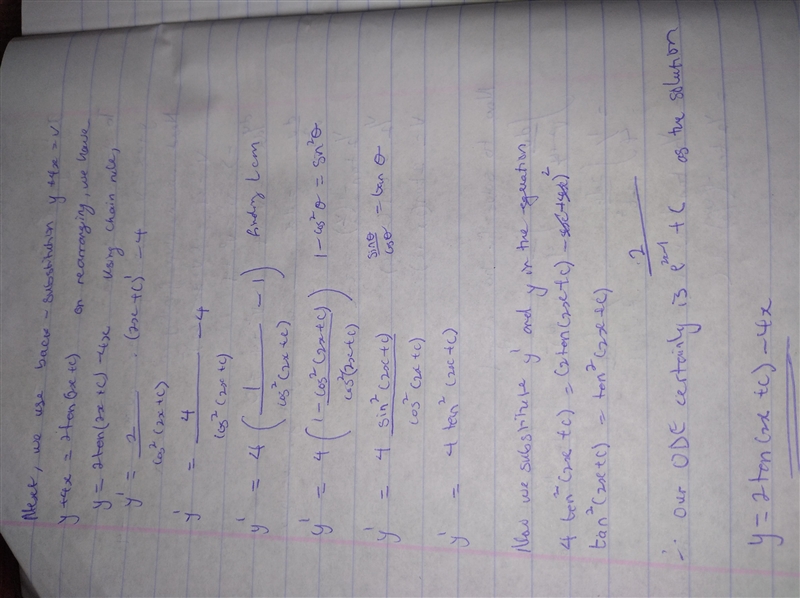 Next, we use back-substitution y+4x=v
y+4x = 2tan(2x+c)
y = 2tan(2x+c) -4x on rearranging, we have
y' = 2/cos²(2x+c) . (2x+c)' -4 Using chain rule,
y' = 4/cos²(2x+c) -4
y' = 4(1/cos²(2x+c) -1) finding Lcm
y' = 4(1-cos²(2x+c)/cos²(2x+c)) 1-cos²θ = sin²θ
y' = 4 sin²(2x+c)/cos²(2x+c) sinθ/cosθ = tanθ
y' = 4 tan²(2x+c)
Now we substitute y' and y in the equation
4 tan²(2x+c) = (2tan(2x+c) -4x+4x)²
tan²(2x+c) = tan²(2x+c)
2
∴ our ODE certainly is e^(2x-1) + c as the solution
y = 2tan(2x+c) -4x